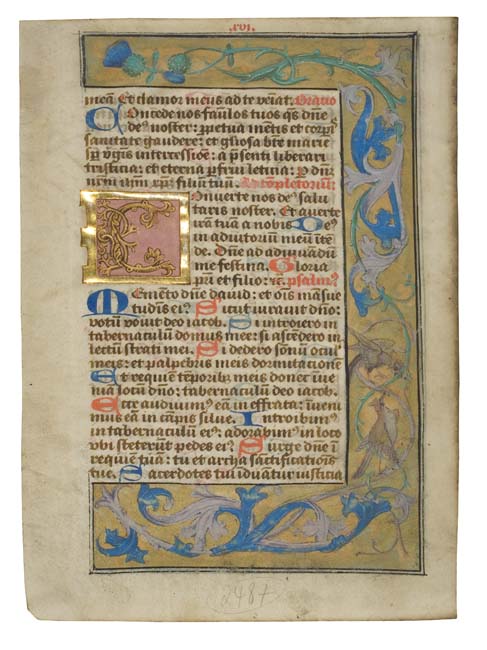 .xvi.
meā. Et clamor meus ad te veniat. Oratio
Concede nos famlos tuos qs dn̄e
de9 noster: ꝑpetua mentis et corpis
sanitate gaudere: et gliosa btē marie
sp virgīs intercessiōe: a p̄senti liberari
tristicia: et eterna ꝑfrui leticia: P dn̄z
nr̄m ihm̄. xp̄z filiū tuū. Ad cōpletoriū:
Conuerte nos de9 salu
taris noster. Et auerte
irā tuā a nobis. De9
in adiutoriū meū itē
de. Dn̄e ad adiuuādū
me festina. Gloria
pr̄i et filio: rc̄. psalm9
Memēto dn̄e dauid: et oīs māsue
tudīs ei9. Sicut iurauit dn̄o:
votū vouit deo iacob. Si introiero in
tabernaculū domus mee: si ascēdero in
lectū strati mei. Si dedero sōnū ocul
meis: et palpebris meis dormitacione
Et requiē tēporib9 meis donec īue
niā locū dn̄o: tabernaculū deo iacob.
Ecce audiuim9 eā in effrata: īueni
mus eā in cāpis silue. Introibim9
in tabernaculū ei9: adorabim9 in loco
vbi steterūt pedes ei9. Surge dn̄e ī
requiē tuā: tu et archa sāctificatōis
tue. Sacerdotes tui īduātur iusticia
2487